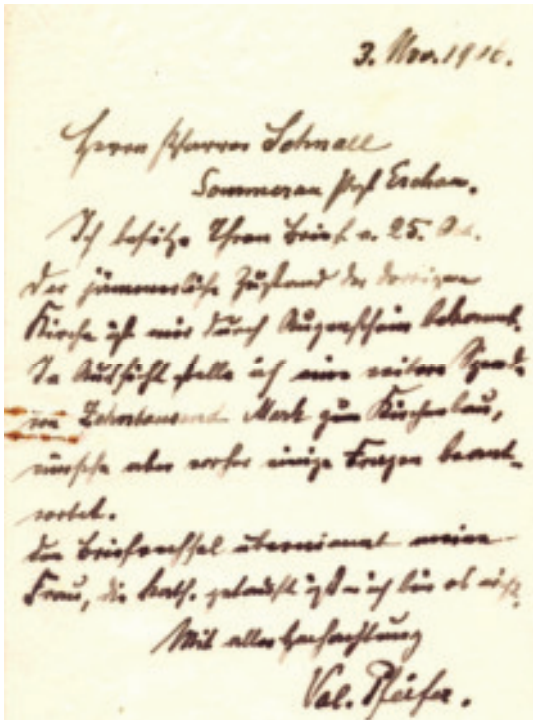 3. Nov. 1916.
Herrn Pfarrer Schnall
Sommerau Post Eschau.
Ich besitze Ihren Brief v. 25. Okt.
Der jämmerliche Zustand der dortigen
Kirche ist mir durch Augenschein bekannt.
In Aussicht stelle ich eine weitere Spende
von Zehntausend Mark zum Kirchenbau,
wünsche aber vorher einige Fragen beant-
wortet.
Den Briefwechsel übernimmt meine
Frau, die kath. getauft ist u ich bin es nicht.
Mit aller Hochachtung
Val. Pfeifer.